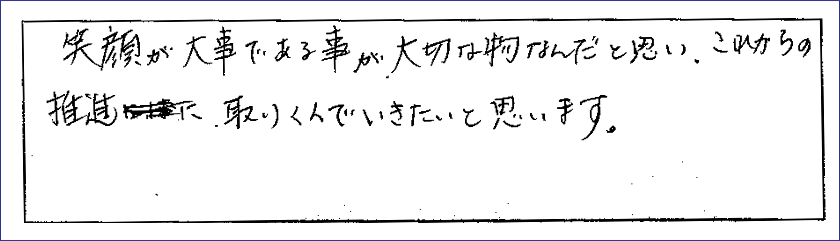 笑顔が大事である事が、大切な物なんだと思い、これからの
推進に、取りくんでいきたいと思います。